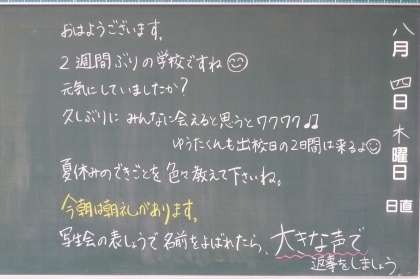 おはようございます。
2週間ぶりの学校ですね
元気にしていましたか?
久しぶりに みんなに会えると思うとワクワク♪♫
ゆうたくんも出校日の2日間は来るよ
夏休みのできごとを 色々教えて下さいね。
今朝は朝礼があります。
写生会の表しょうで 名前をよばれたら、大きな声で
返事をしましょう
八月 四日 木曜日
日直